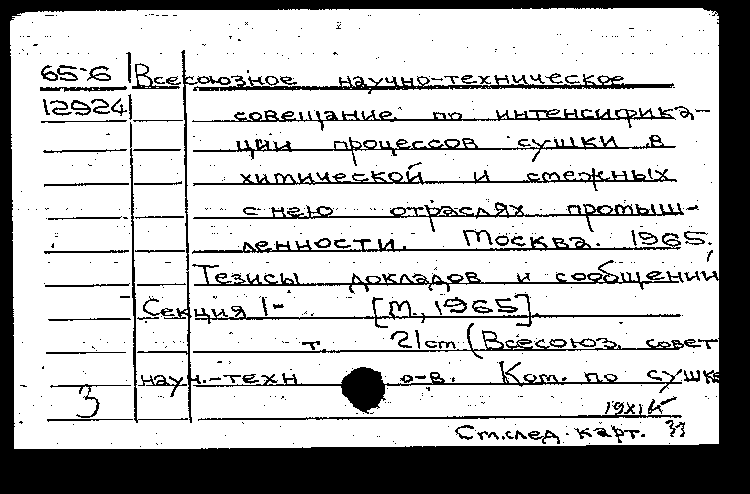 65-6 Всесоюзное научно-техническое
12924 совещание по интенсифика-
ции процессов сушки в
химической и смежных
с нею отраслях промыш-
ленности. Москва. 1965.
Тезисы докладов и сообщений
Секция 1- [М., 1965].
т. 21 cm (Всесоюз. совет
науч.-техн о-в. Ком. по сушке
3
Ст.след. карт. 33